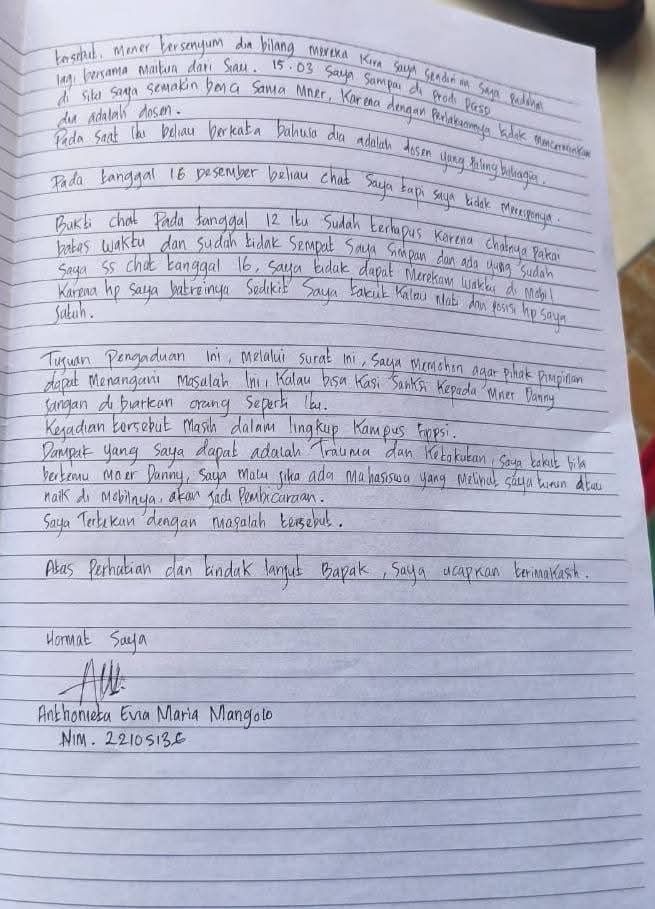 tersebut. Mener tersenyum dia bilang mereka kira saya sendirian saya padahal
lagi bersama Maitua dari Siau. 15.03 saya sampai di Prodi PGSD
di situ saya semakin benci sama Mner, karena dengan perlakuannya tidak mencerminkan
dia adalah dosen.
Pada saat itu beliau berkata bahwa dia adalah dosen yang paling bahagia.
Pada tanggal 16 Desember beliau chat saya tapi saya tidak meresponya.
Bukti chat pada tanggal 12 itu sudah terhapus karena chatnya pakai
batas waktu dan sudah tidak sempat saya simpan dan ada yang sudah
saya ss chat tanggal 16, saya tidak dapat merekam waktu di mobil
karena hp saya batreinya sedikit saya takut kalau mati dan posisi hp saya
jatuh.
Tujuan Pengaduan ini, melalui surat ini, saya memohon agar pihak pimpinan
dapat menangani masalah ini, kalau bisa kasi sanksi kepada Mner Danny
jangan di biarkan orang seperti itu.
Kejadian tersebut masih dalam lingkup kampus Fipsi.
Dampak yang saya dapat adalah Trauma dan Ketakutan, saya takut bila
bertemu mner Danny, saya malu jika ada mahasiswa yang melihat saya turun atau
naik di mobilnya, akan jadi pembicaraan.
Saya Tertekan dengan masalah tersebut.
Atas perhatian dan tindak lanjut Bapak, saya ucapkan terimakasih.
Hormat Saya
Anthonieta Evia Maria Mangolo
NIM.